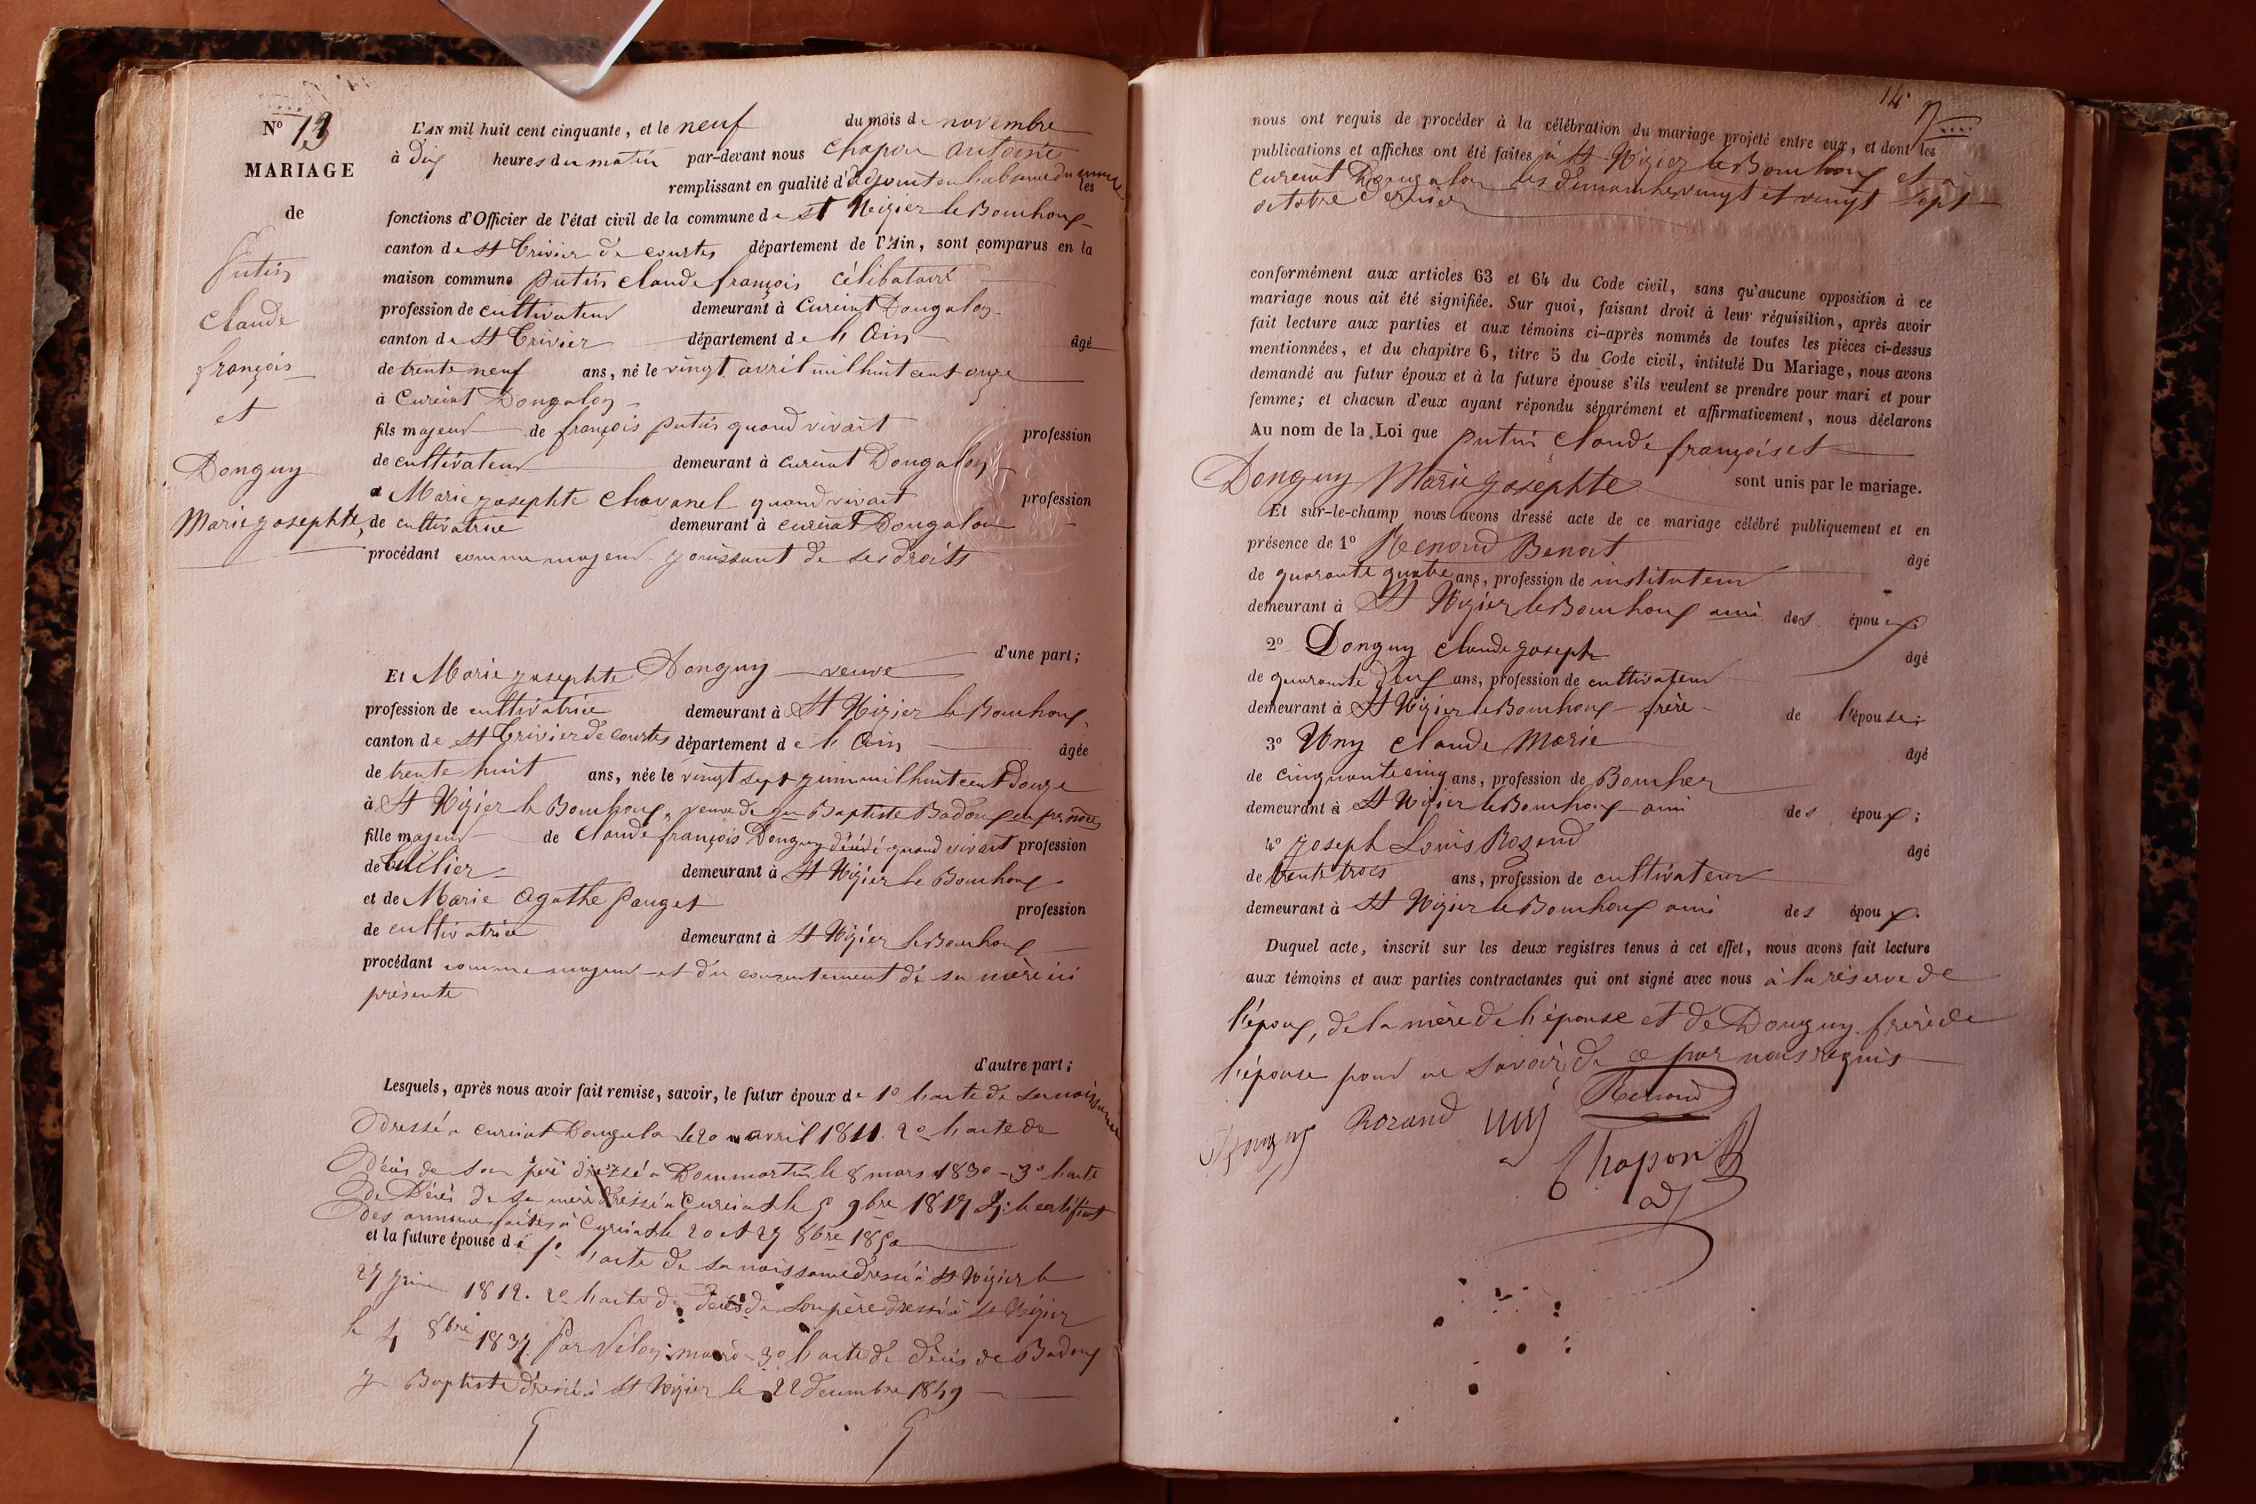 Nº 13
MARIAGE
de
Putin
Claude
françois
et
Donguy
Marie josephte,
L'AN mil huit cent cinquante, et le neuf du mois de novembre
à Dix heures du matin par-devant nous Chapon antoine
remplissant en qualité d'adjoint en l'absence du maire les
fonctions d'Officier de l'état civil de la commune de St Nizier le Bouchoux
canton de St Trivier de courtes département de l'Ain, sont comparus en la
maison commune Putin claude françois célibataire
profession de cultivateur demeurant à Curciat Dongalon
canton de St Trivier département de l'Ain âgé
de trente neuf ans, né le vingt avril mil huit cent onze
à Curciat Dongalon
fils majeur de françois putin quand vivait profession
de cultivateur demeurant à curciat Dongalon
et Marie josephte Chavanel quand vivait profession
de cultivatrice demeurant à curciat Dongalon
procédant comme majeur jouissant de ses droits
d'une part;
Et Marie josephte Donguy veuve
profession de cultivatrice demeurant à St Nizier le Bouchoux
canton de St Trivier de courtes département de l'Ain âgée
de trente huit ans, née le vingt sept juin mil huit cent Douze
à St Nizier le Bouchoux, veuve de jn Baptiste Badoux en pr noces
fille majeur de Claude françois Donguy décédé quand vivait profession
de tuilier demeurant à St Nizier le Bouchoux
et de Marie Agathe Pauget profession
de cultivatrice demeurant à St Nizier le Bouchoux
procédant comme majeur et du consentement de sa mère ici
présente
d'autre part;
Lesquels, après nous avoir fait remise, savoir, le futur époux de 1º l'acte de sa naissance
Dressé à curciat Dongalon le 20 avril 1811. 2º l'acte de
Décès de son père dressé à Dommartin le 8 mars 1830 – 3º l'acte
De Décès de sa mère dressé à Curciat le 5 9bre 1847 4º le certificat
des annonces faites à Curciat le 20 et 27 8bre 1850
et la future épouse de 1º l'acte de sa naissance dressé à St Nizier le
27 juin 1812. 2º l'acte de décès de son père dressé à St Nizier
le 4 8bre 1837 par maire 3º l'acte de décès de Badoux
jn Baptiste dressé à St Nizier le 22 décembre 1849
14
nous ont requis de procéder à la célébration du mariage projeté entre eux, et dont les
publications et affiches ont été faites à St Nizier le Bouchoux et à
Curciat Dongalon les dimanches vingt et vingt sept
octobre dernier
conformément aux articles 63 et 64 du Code civil, sans qu'aucune opposition à ce
mariage nous ait été signifiée. Sur quoi, faisant droit à leur réquisition, après avoir
fait lecture aux parties et aux témoins ci-après nommés de toutes les pièces ci-dessus
mentionnées, et du chapitre 6, titre 5 du Code civil, intitulé Du Mariage, nous avons
demandé au futur époux et à la future épouse s'ils veulent se prendre pour mari et pour
femme; et chacun d'eux ayant répondu séparément et affirmativement, nous déclarons
Au nom de la Loi que putin claude françois et
Donguy Marie josephte sont unis par le mariage.
Et sur-le-champ nous avons dressé acte de ce mariage célébré publiquement et en
présence de 1º Renoud Benoit âgé
de quarante quatre ans, profession de instituteur
demeurant à St Nizier le Bouchoux ami des époux;
2º Donguy claude joseph âgé
de quarante deux ans, profession de cultivateur
demeurant à St Nizier le Bouchoux frère de l'épouse;
3º Uny claude Marie âgé
de cinquante cinq ans, profession de Boucher
demeurant à St Nizier le Bouchoux ami des époux;
4º joseph Louis Rozand âgé
de trente trois ans, profession de cultivateur
demeurant à St Nizier le Bouchoux ami des époux.
Duquel acte, inscrit sur les deux registres tenus à cet effet, nous avons fait lecture
aux témoins et aux parties contractantes qui ont signé avec nous à la réserve de
l'époux, de la mère de l'épouse et de Donguy frère de
l'épouse pour ne savoir, de ce par nous requis
Renoud
Donguy Rozand uny
Chapon
adj